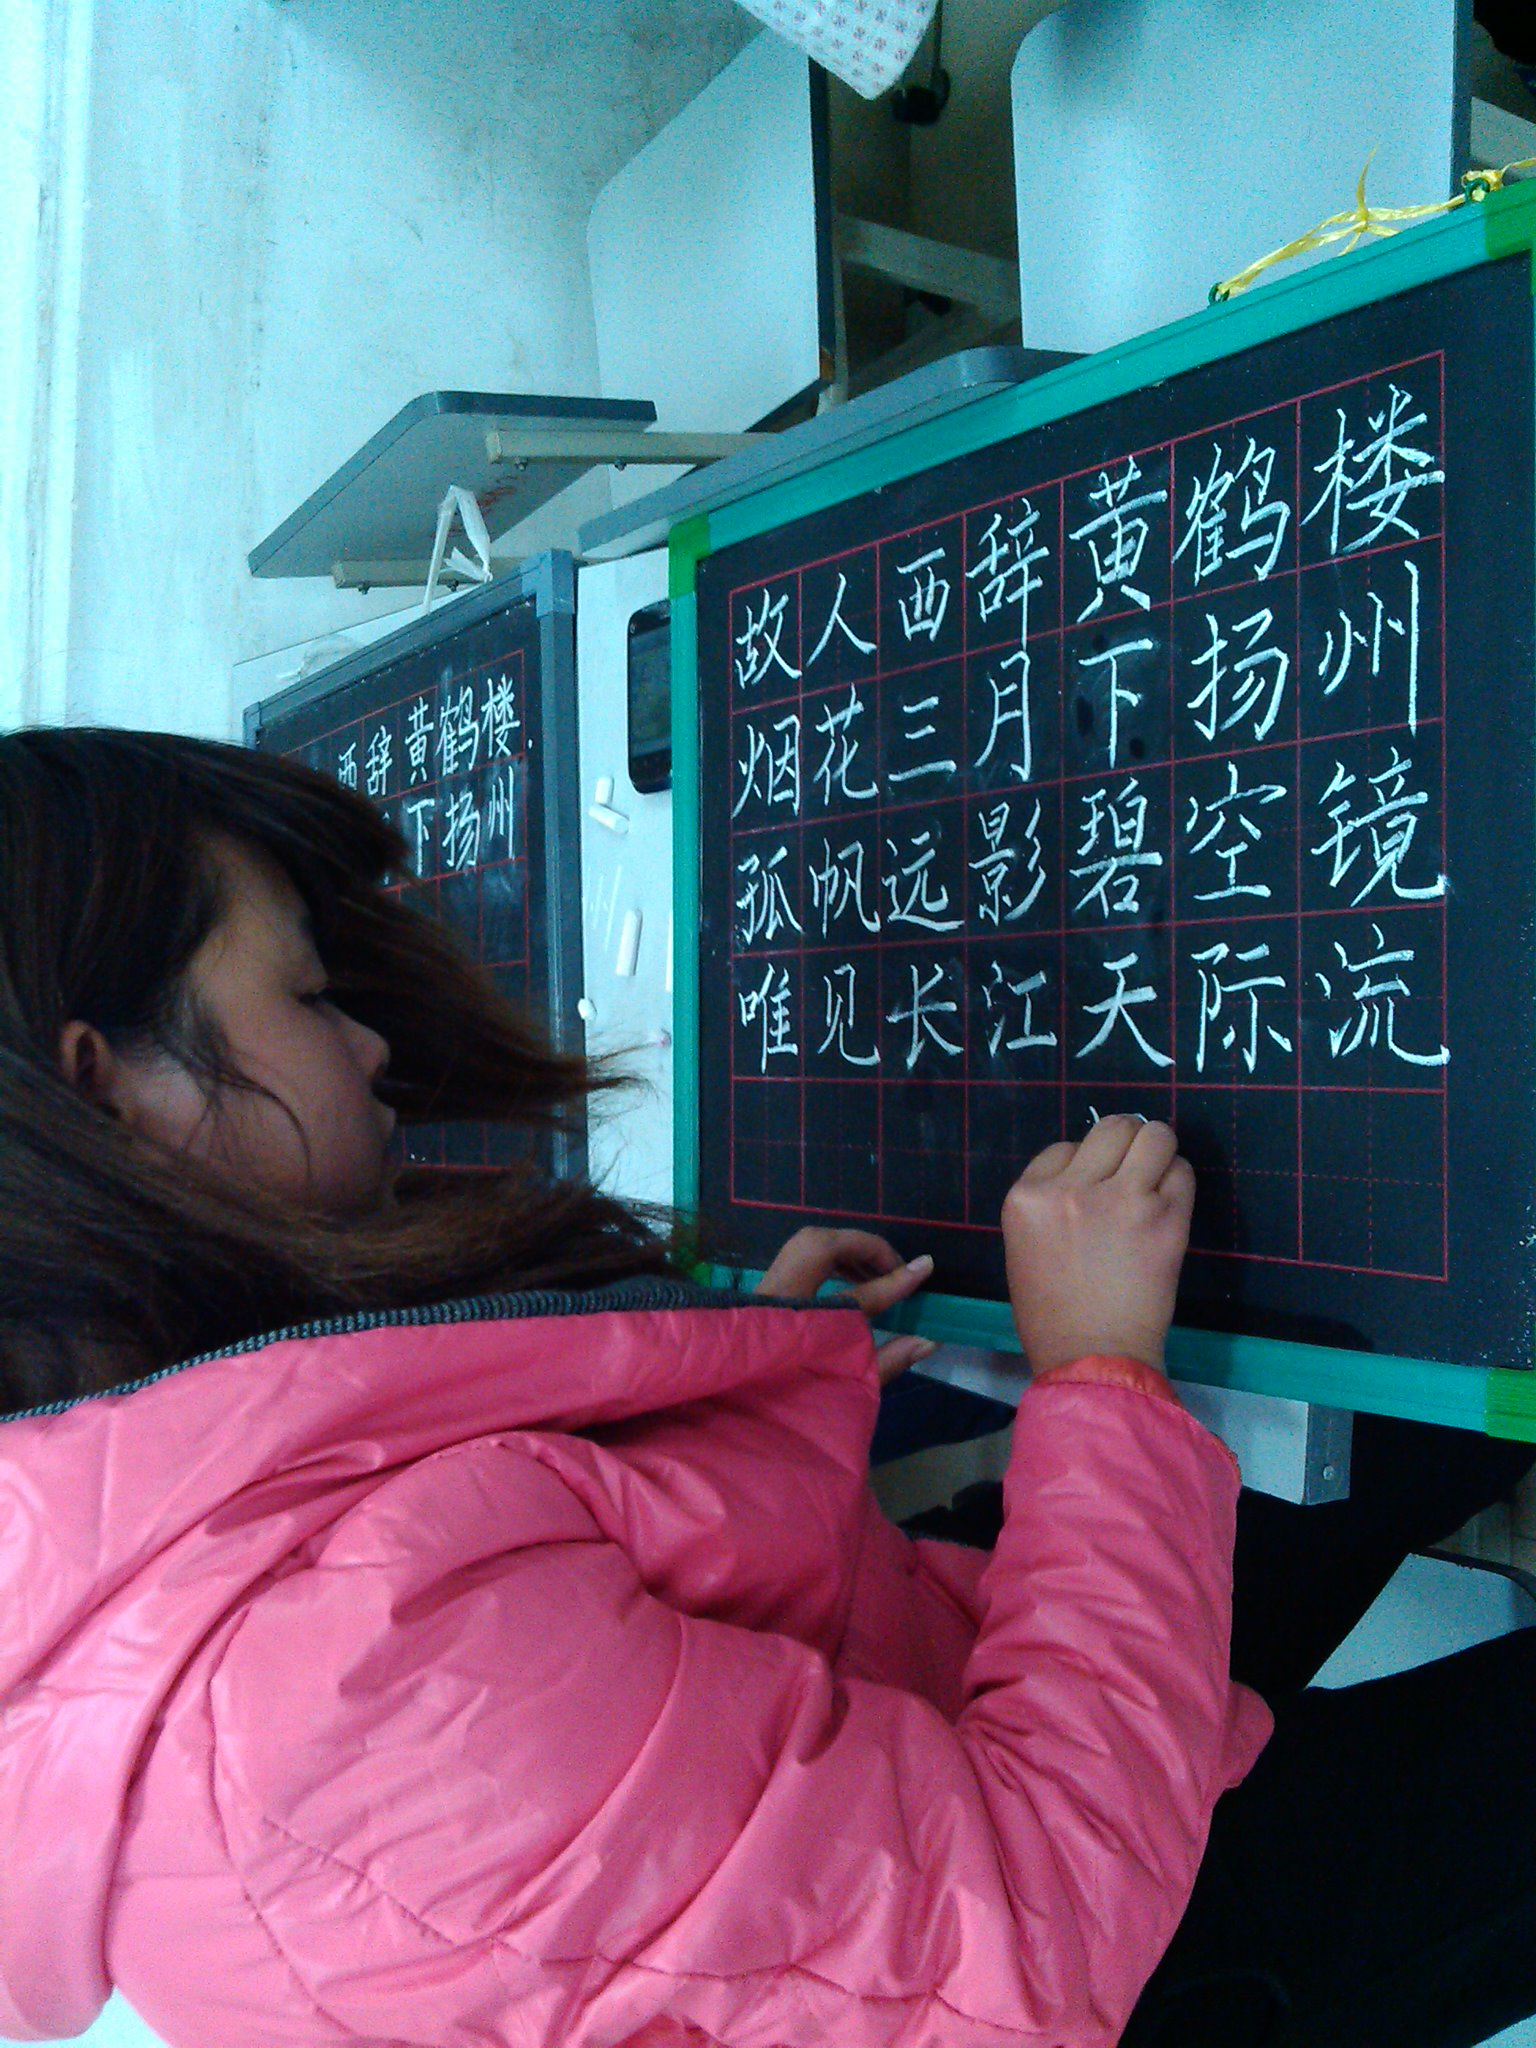 故人西辞黄鹤楼
烟花三月下扬州
孤帆远影碧空镜
唯见长江天际流
西辞黄鹤楼
下扬州